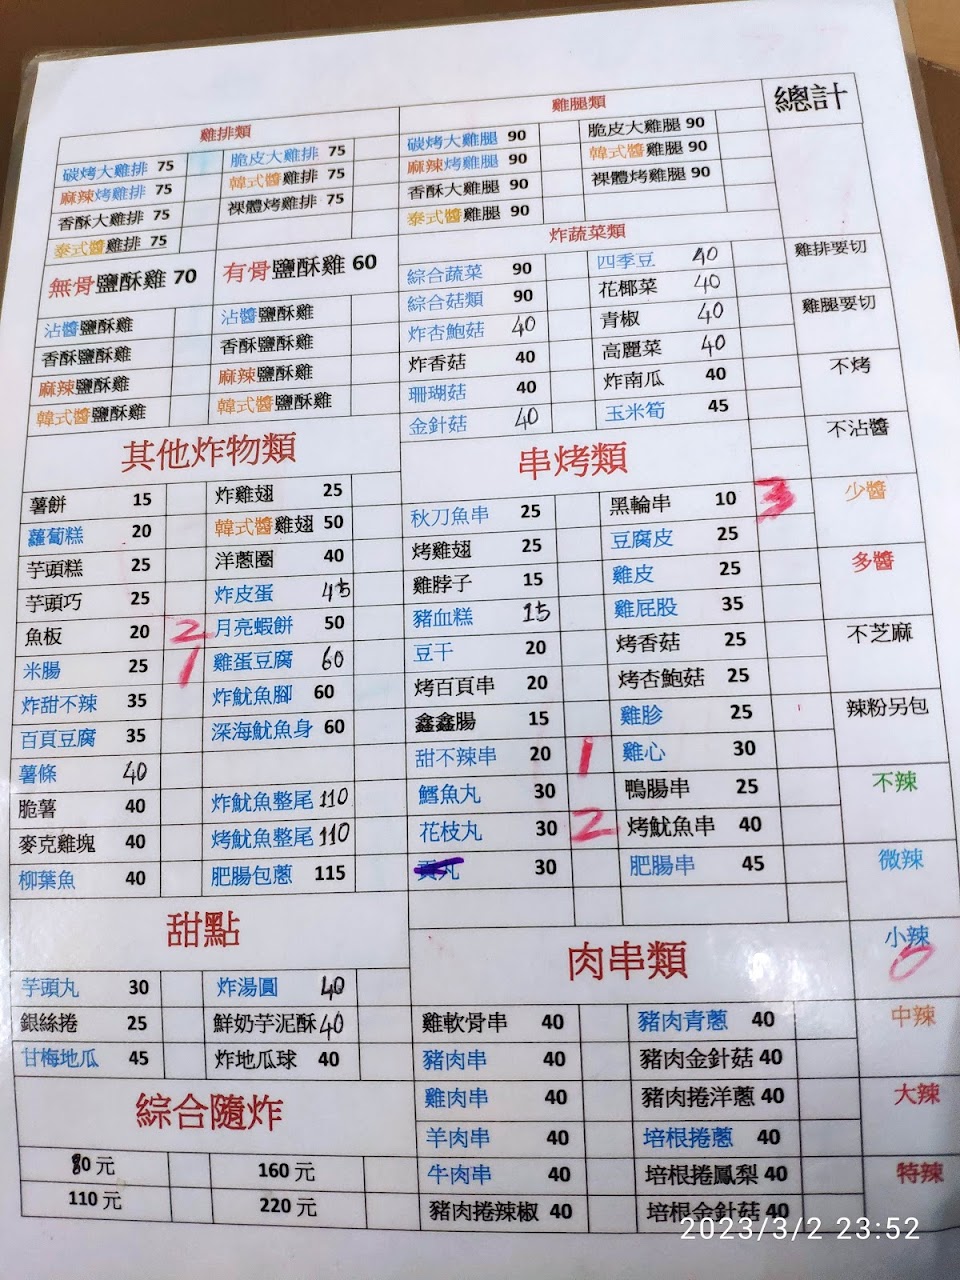 總計
雞排類
碳烤大雞排 75 脆皮大雞排 75
麻辣烤雞排 75 韓式醬雞排 75
香酥大雞排 75 裸體烤雞排 75
泰式醬雞排 75
無骨鹽酥雞 70 有骨鹽酥雞 60
沾醬鹽酥雞 沾醬鹽酥雞
香酥鹽酥雞 香酥鹽酥雞
麻辣鹽酥雞 麻辣鹽酥雞
韓式醬鹽酥雞 韓式醬鹽酥雞
雞腿類
碳烤大雞腿 90 脆皮大雞腿 90
麻辣烤雞腿 90 韓式醬雞腿 90
香酥大雞腿 90 裸體烤雞腿 90
泰式醬雞腿 90
炸蔬菜類
綜合蔬菜 90 四季豆 40
綜合菇類 90 花椰菜 40
炸杏鮑菇 40 青椒 40
炸香菇 40 高麗菜 40
珊瑚菇 40 炸南瓜 40
金針菇 40 玉米筍 45
其他炸物類
薯餅 15 炸雞翅 25
蘿蔔糕 20 韓式醬雞翅 50
芋頭糕 25 洋蔥圈 40
芋頭巧 25 炸皮蛋 45
魚板 20 2 月亮蝦餅 50
米腸 25 1 雞蛋豆腐 60
炸甜不辣 35 炸魷魚腳 60
百頁豆腐 35 深海魷魚身 60
薯條 40
脆薯 40 炸魷魚整尾 110
麥克雞塊 40 烤魷魚整尾 110
柳葉魚 40 肥腸包蔥 115
串烤類
秋刀魚串 25 黑輪串 10 3
烤雞翅 25 豆腐皮 25
雞脖子 15 雞皮 25
豬血糕 15 雞屁股 35
豆干 20 烤香菇 25
烤百頁串 20 烤杏鮑菇 25
鑫鑫腸 15 雞胗 25
甜不辣串 20 1 雞心 30
鱈魚丸 30 鴨腸串 25
花枝丸 30 2 烤魷魚串 40
貢丸 30 肥腸串 45
甜點
芋頭丸 30 炸湯圓 40
銀絲捲 25 鮮奶芋泥酥 40
甘梅地瓜 45 炸地瓜球 40
綜合隨炸
80 元 160 元
110 元 220 元
肉串類
雞軟骨串 40 豬肉青蔥 40
豬肉串 40 豬肉金針菇 40
雞肉串 40 豬肉捲洋蔥 40
羊肉串 40 培根捲蔥 40
牛肉串 40 培根捲鳳梨 40
豬肉捲辣椒 40 培根金針菇 40
雞排要切
雞腿要切
不烤
不沾醬
少醬
多醬
不芝麻
辣粉另包
不辣
微辣
小辣
中辣
大辣
特辣
2023/3/2 23:52